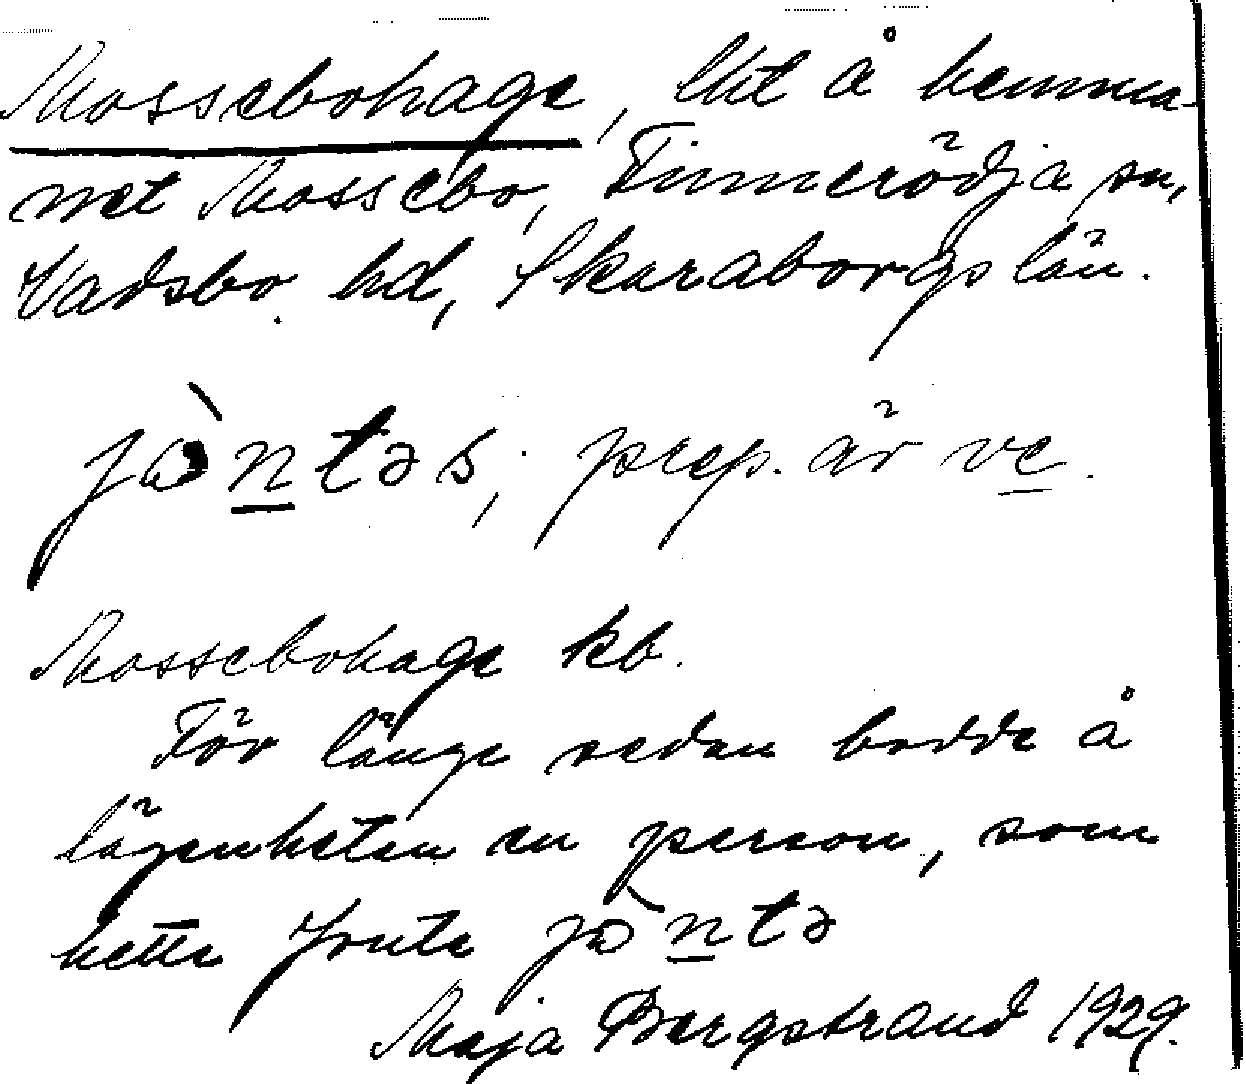 Mossebohage, lht å hemma-
net Mossebo, Finnerödja sn,
Vadsbo hd, Skaraborgs län.
jò̀n̲təs, prep. är ve̲.
Mossebohage kb.
För länge sedan bodde å
lägenheten en person, som
hette Jonte jòn̲tə
Maja Bergstrand 1929.